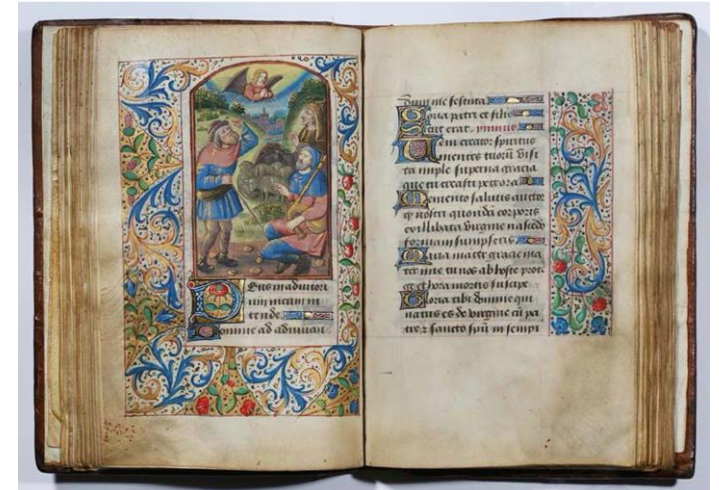 Deus in adiutori
um meum in
tende
Domine ad adiuuan
dum me festina
Gloria patri et filio
Sicut erat ymnus
Ueni creator spiritus
mentes tuorum visi
ta imple superna gracia
que tu creasti pectora
Memento salutis auctor
q nostri quondā corporis
ex illibata virgine nascēdo
formam sumpseris
Maria mater gracie ma
ter mie tu nos ab hoste prote
ge et hora mortis suscipe
Gloria tibi domine qui
natus es de virgine cū pa
tre z sancto spū in sempi